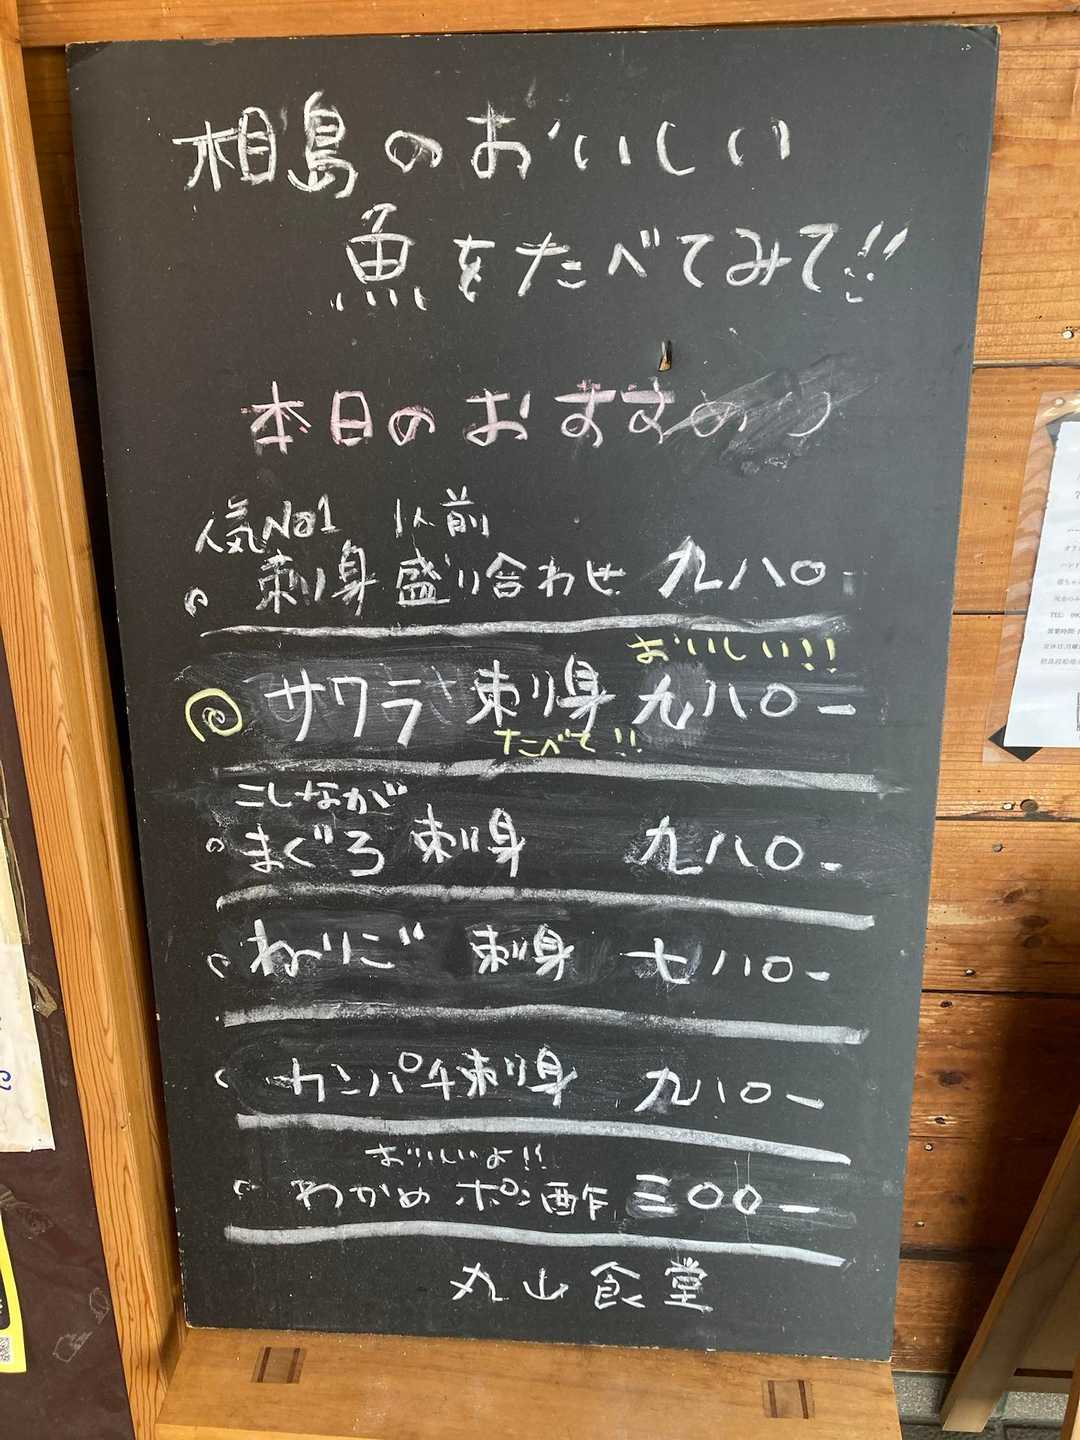 相島のおいしい
魚をたべてみて!!
本日のおすすめ
人気No1 1人前
刺身盛り合わせ 九八〇-
おいしい!!
サワラ 刺身 九八〇-
たべて!!
こしなが
まぐろ 刺身 九八〇-
ねりご 刺身 七八〇-
カンパチ刺身 九八〇-
おいしいよ!!
わかめ ポン酢 三〇〇-
丸山食堂